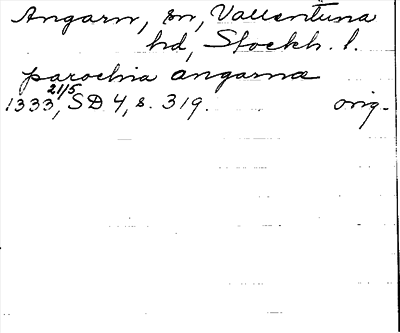 Angarn, sn, Vallentuna
hd, Stockh. l.
parochia angarnæ
1333 21/5, SD 4, s. 319. orig.